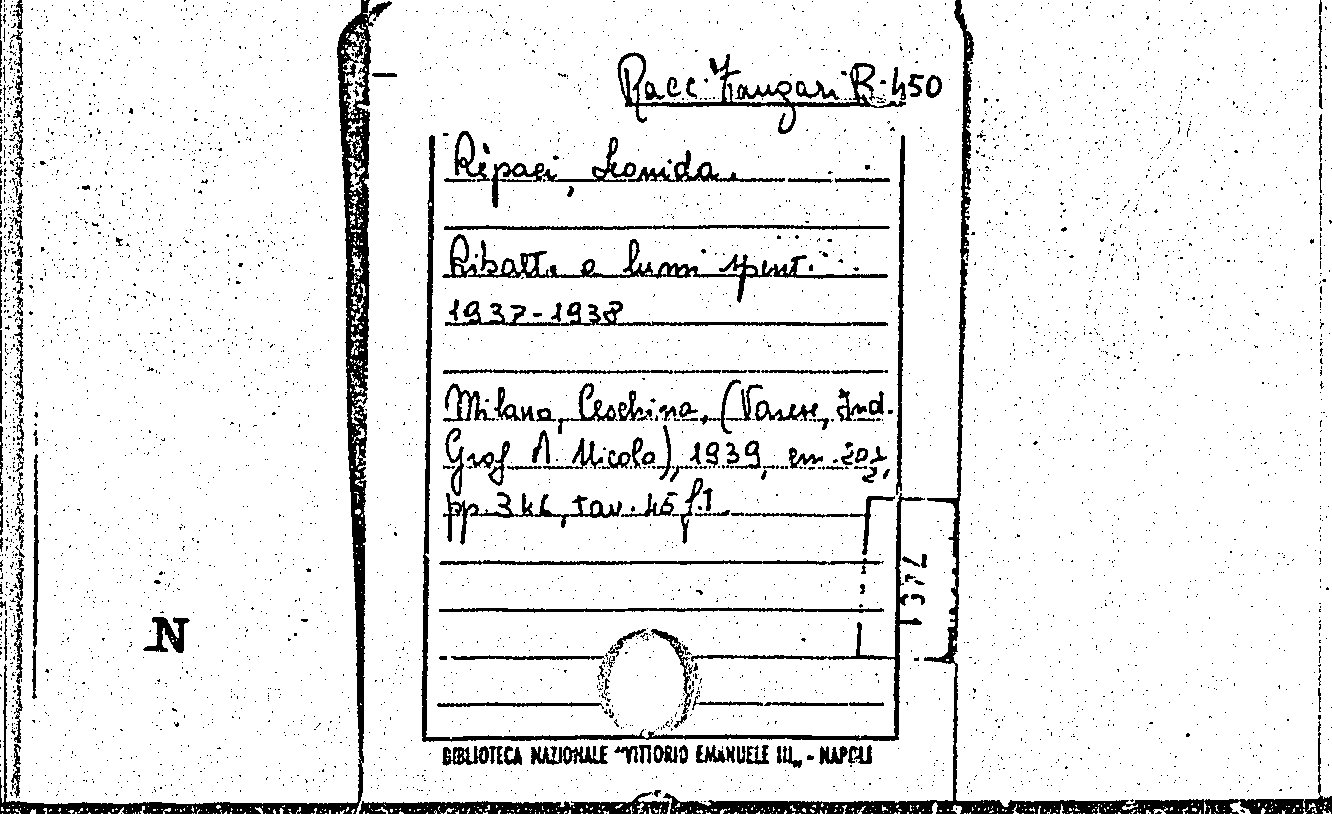 Racc. Fangari B. 450
Rèpaci, Leonida.
Ribatte a lumi spenti
1937-1938
Milano, Ceschina, (Varese, Ind.
Graf A. Nicola), 1939, cm. 20½,
pp. 346, tav. 45 f.t.
N
7431
BIBLIOTECA NAZIONALE "VITTORIO EMANUELE III" - NAPOLI